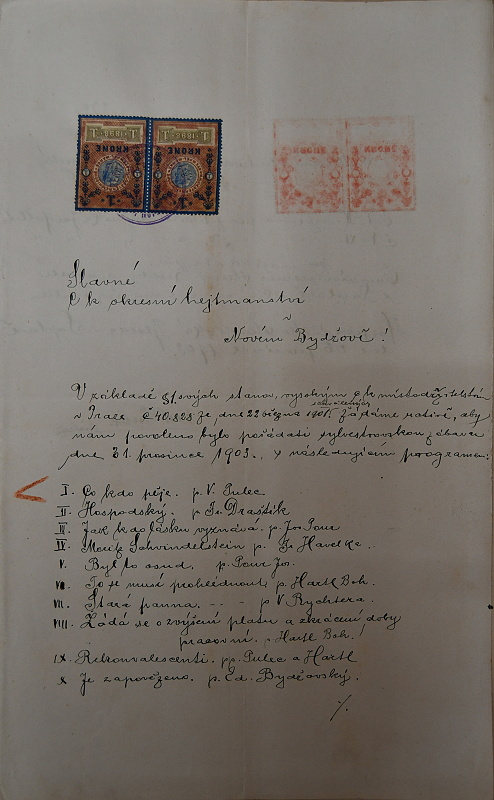 T 1898 T
T 1898 T
KRONE
KRONE
1
1
Slavné
C k okresní hejtmanství
v
Novém Bydžově!
V základě §1 svých stanov, vysokým c k místodržitelstvím
v Praze Č 40.828 ze dne 22 března 1901. schválených žádáme uctivě, aby
nám povoleno bylo pořádati sylvestrovskou zábavu
dne 31. prosince 1903., s následujícím programem:
I. Co kdo pěje. p. V. Pulec
II. Hospodský. p Fr. Draštík
III. Jak kdo lásku vyznává. p. Jos Pour
IV. Moritz Schwindelstein p. Fr Havelka.
V. Byl to osud. p. Pour Jos.
VI. To se musí prohlédnout, p. Hartl Boh.
VII. Stará panna. - - - p V. Rychtera.
VIII. Žádá se o zvýšení platu a zkrácení doby
pracovní. - Hartl Boh.!
IX. Rekonvalescenti. pp. Pulec a Hartl
X Je zapovězeno. p. Ed. Bydžovský.
./.